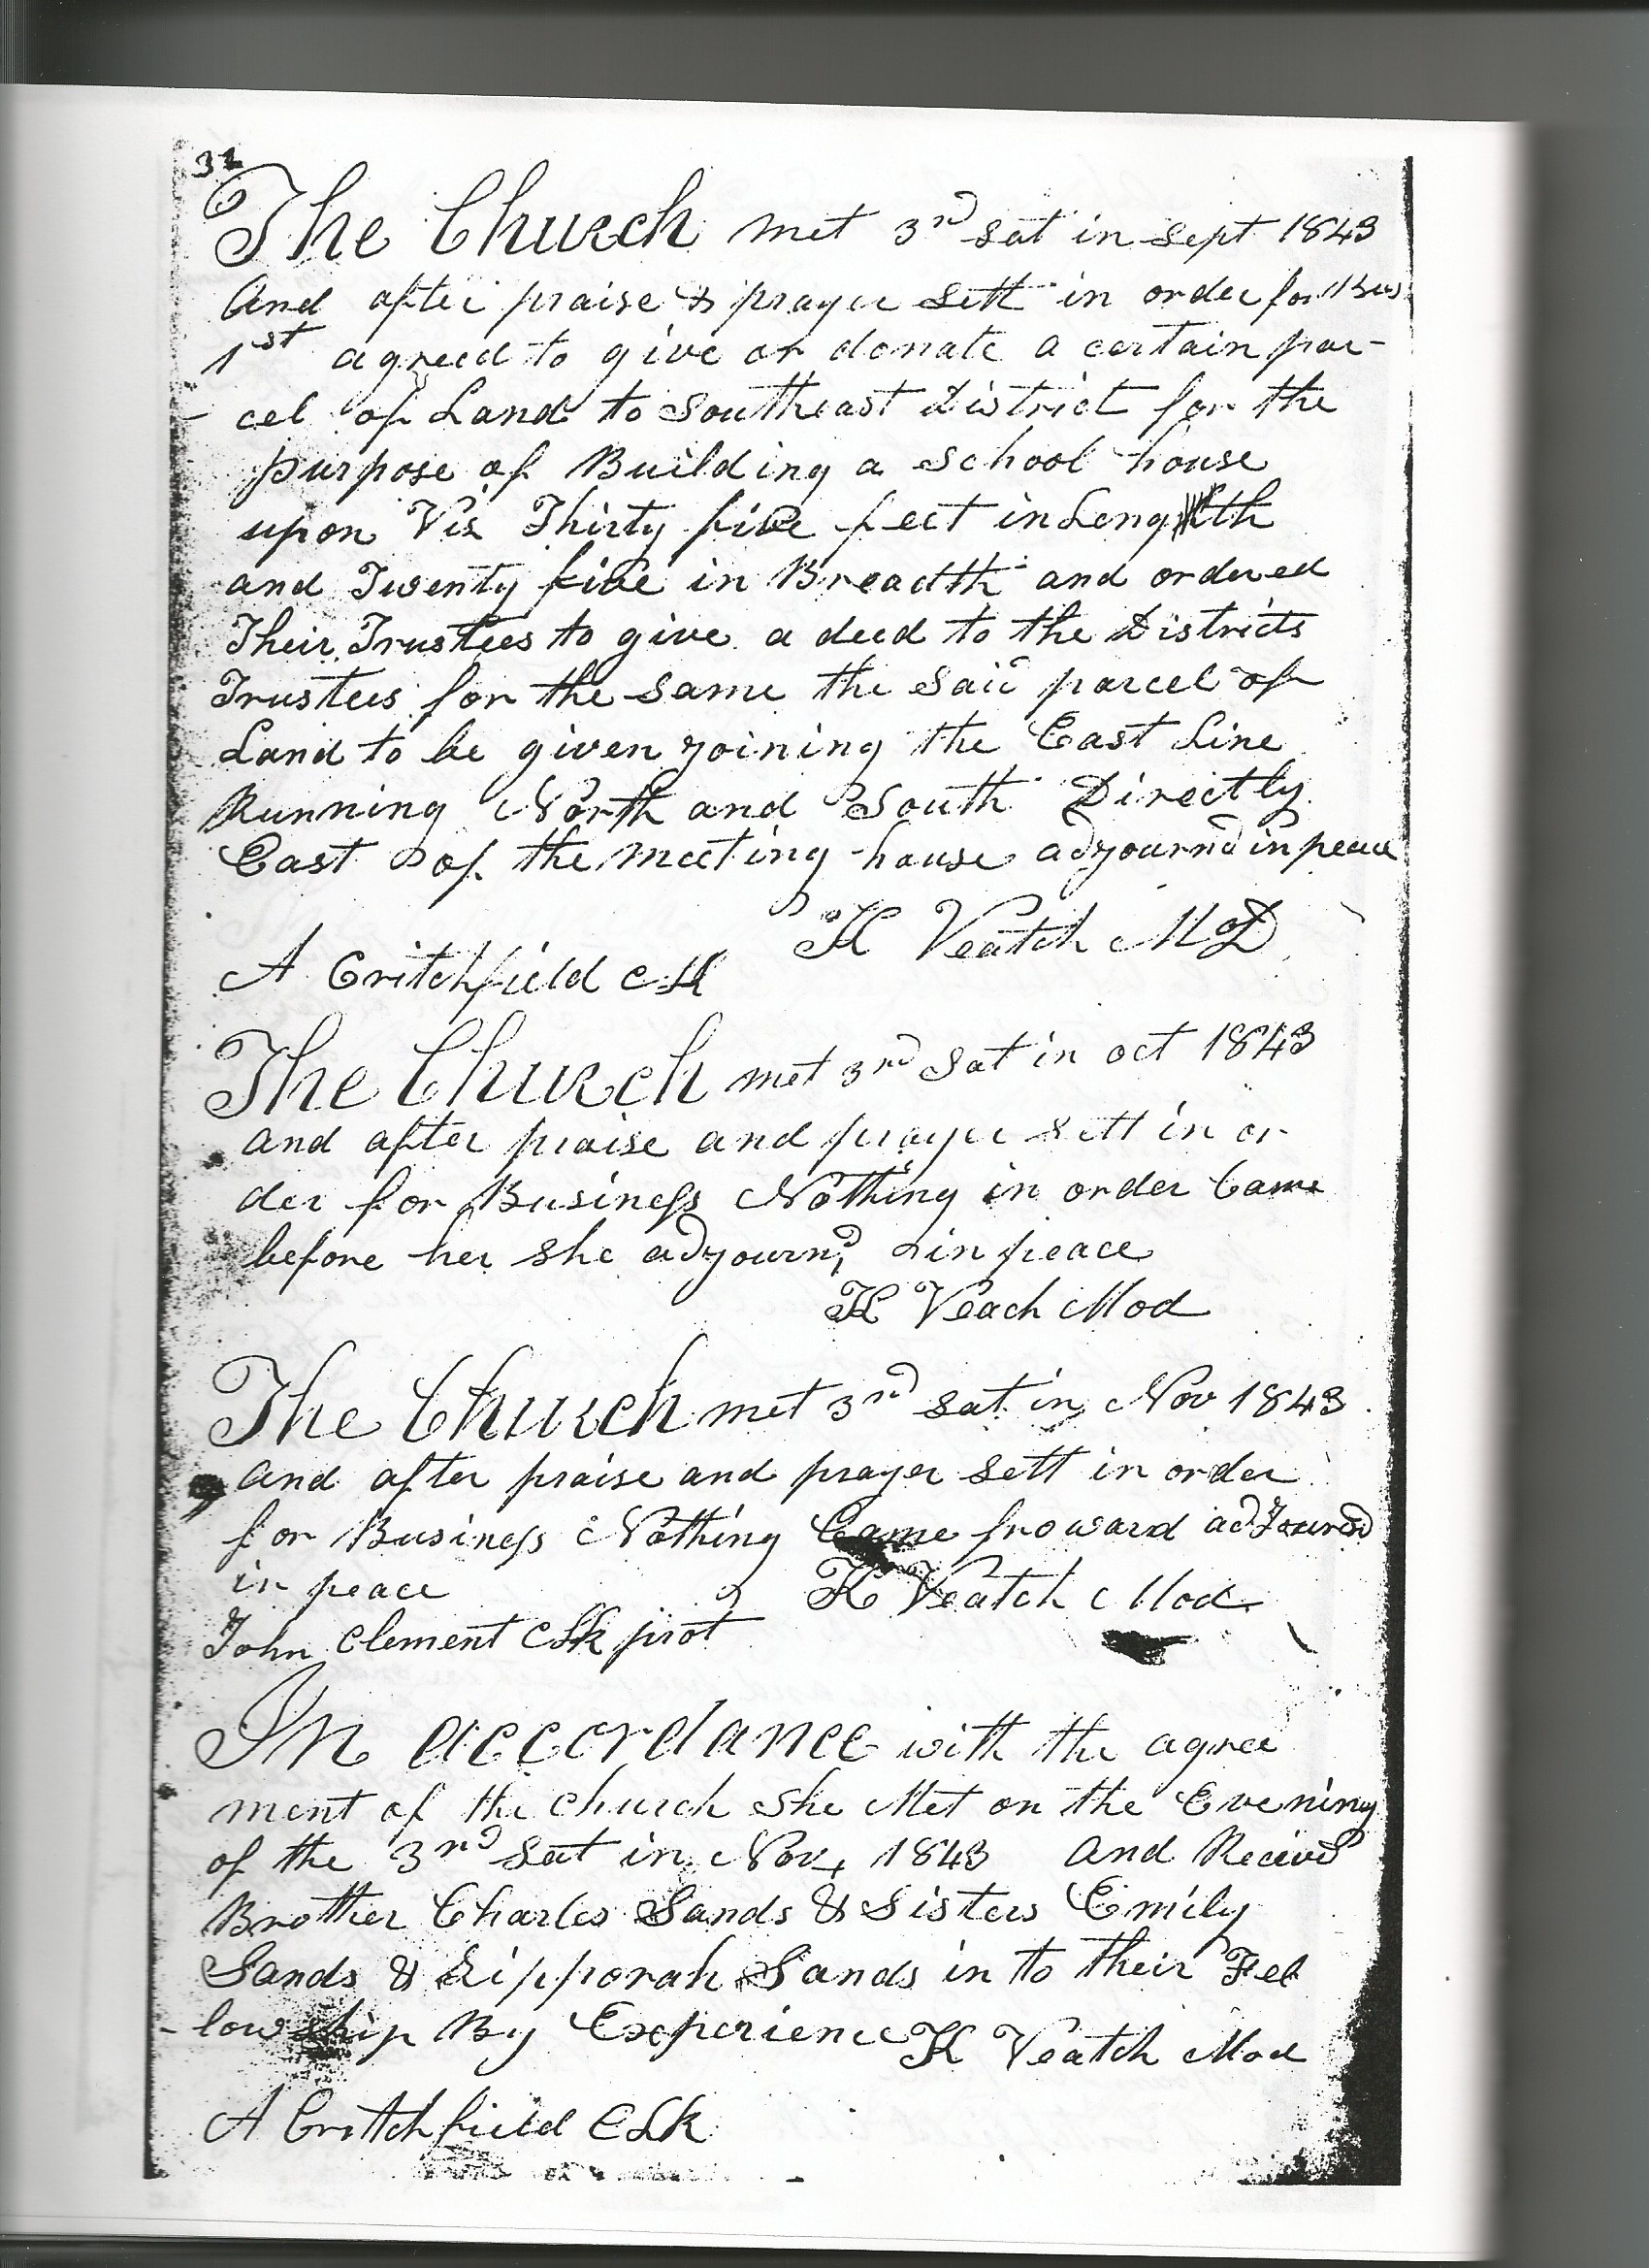 32
The Church met 3rd Sat in Sept 1843
And after praise & prayer Sett in order for Bus
1st agreed to give or donate a certain par-
cel of Land to Southeast District for the
purpose of Building a School house
upon Viz Thirty five feet in Length
and Twenty five in Breadth and ordered
Their Trustees to give a deed to the Districts
Trustees for the same the Said parcel of
Land to be given joining the East Line
Running North and South Directly
East of the meeting house adjournd in peace
K Veatch MoD
A Critchfield Clk
The Church met 3rd Sat in oct 1843
and after praise and prayer sett in or
der for Business Nothing in order Came
before her she adjournd in peace
K Veach Mod
The Church met 3rd Sat in Nov 1843
and after praise and prayer Sett in order
for Business Nothing Came froward adjournd
in peace
K Veatch Mod
John Clement Clk prot
In accordance with the agree
ment of the church she Met on the Evening
of the 3rd Sat in Nov, 1843 and Receivd
Brother Charles Sands & Sisters Emily
Sands & Zipporah Sands in to their Fel
-lowship By Experience
K Veatch Mod
A Critchfield Clk